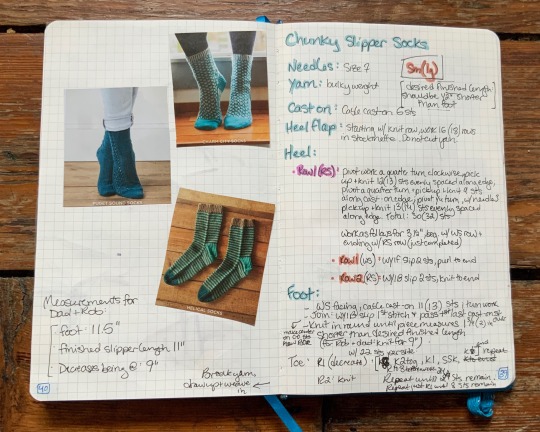 PUGET SOUND SOCKS
HELICAL SOCKS
Measurements for
Dad + Rob:
foot: 11.5"
finished slipper length 11"
Decreases being @: 9"
Break yarn,
draw up + weave
in
40
Chunky Slipper Socks
Needles: Size 7
Sm(lg)
Yarn: bulky weight
desired finished length
should be 1/2" shorter
than foot
Cast on: Cable cast on 6 sts
Heel flap: Starting w/ knit row, work 16 (18) rows
in stockinette. Do not cut yarn.
Heel:
Row 1 (RS): pivot work a quarter turn clockwise, pick
up + knit 12(13) sts evenly spaced along edge,
pivot a quarter turn + pick up + knit 6 sts
along cast-on edge, pivot 1/4 turn, w/ needle
pick up + knit 13(14) sts evenly spaced
along edge. Total: 30(32) sts
Work as follows for 3 1/2", beg. w/ WS row +
ending w/ RS row (just completed)
Row 1 (WS): w/ yif slip 2 sts, purl to end
Row 2 (RS): w/ yib slip 2 sts, knit to end
Foot:
WS facing, cable cast-on 11(13) sts, turn work
- Join: w/ yib slip 1st stitch + pass last cast-on st
over
- Knit in round until piece measures
shorter than desired finished length
(for Rob + dad: knit for 9")
w/ 22 sts per side
Toe: R1 (decrease): k2tog, k1, SSK,
R2: knit
Repeat until 24 sts remain.
Repeat just R1 until 8 sts remain
39